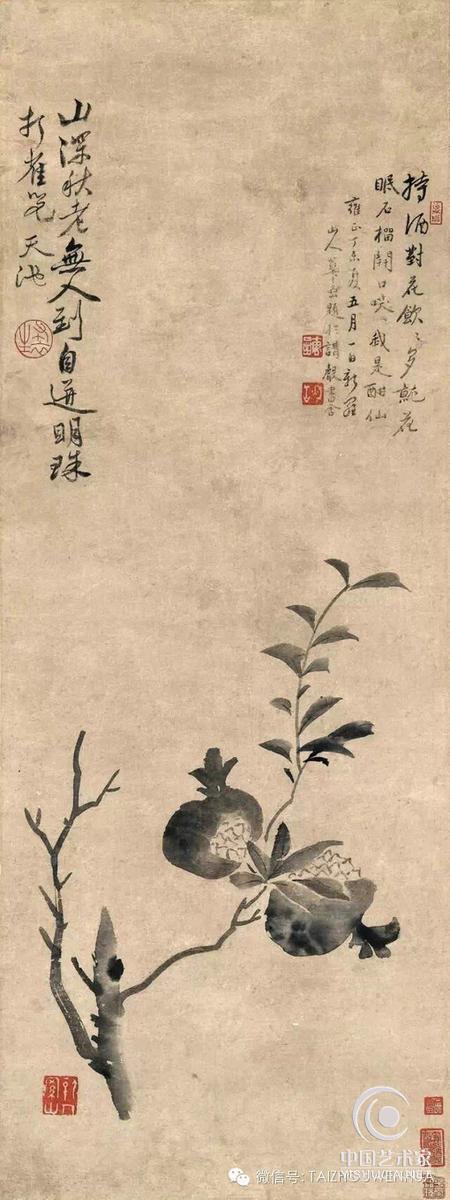 持酒對花飲、多就花
眠石榴開口咲、我是酣仙
雍正丁未夏五月一日新羅
山人題於講書舍
山深秋老無人到自迸明珠
打雀兒 天池
中国艺术家
YISHUJIA
微信号: TAIZHISUWENHUA